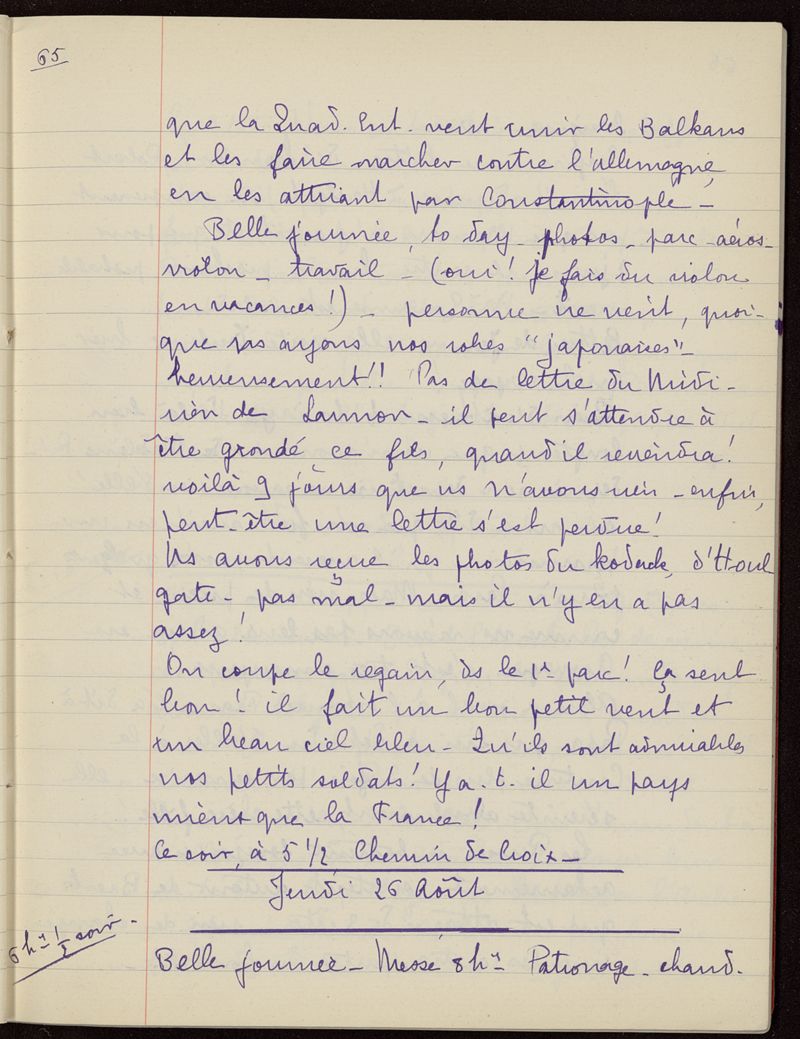 65
que la Quad. Ent. veut unir les Balkans
et les faire marcher contre l'allemagne,
en les attirant par Constantinople -
Belle journée, to day - photos - parc - aéros -
violon - travail - (oui! je fais du violon
en vacances!) - personne ne vient, quoi-
que ns ayons nos robes "japonaises" -
heureusement!! Pas de lettre du Midi -
rien de Lannion - il peut s'attendre à
être grondé ce fils, quand il reviendra!
voilà 9 jours que ns n'avons rien - enfin,
peut-être une lettre s'est perdue!
Ns avons reçue les photos du kodack, d'Houl
gate - pas mal - mais il n'y en a pas
assez!
On coupe le regain, ds le 1er parc! ça sent
bon! il fait un bon petit vent et
un beau ciel bleu - Qu'ils sont admirables
nos petits soldats! Y a. t. il un pays
mieux que la France!
Ce soir, à 5 1/2 Chemin de Croix -
Jeudi 26 Août
6 hrs 1/2 soir -
Belle journée - Messe 8 hrs Patronage - chaud.